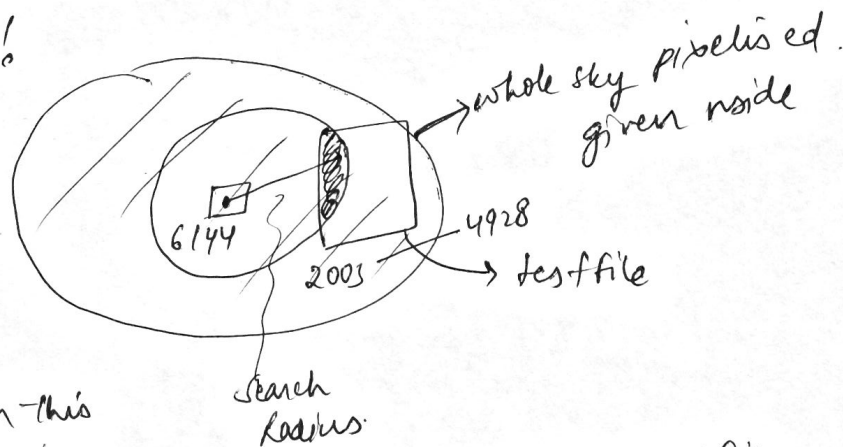 !
whole sky pixelised.
given nside
6144
4928
2003
testfile
Search
Radius.
n-this